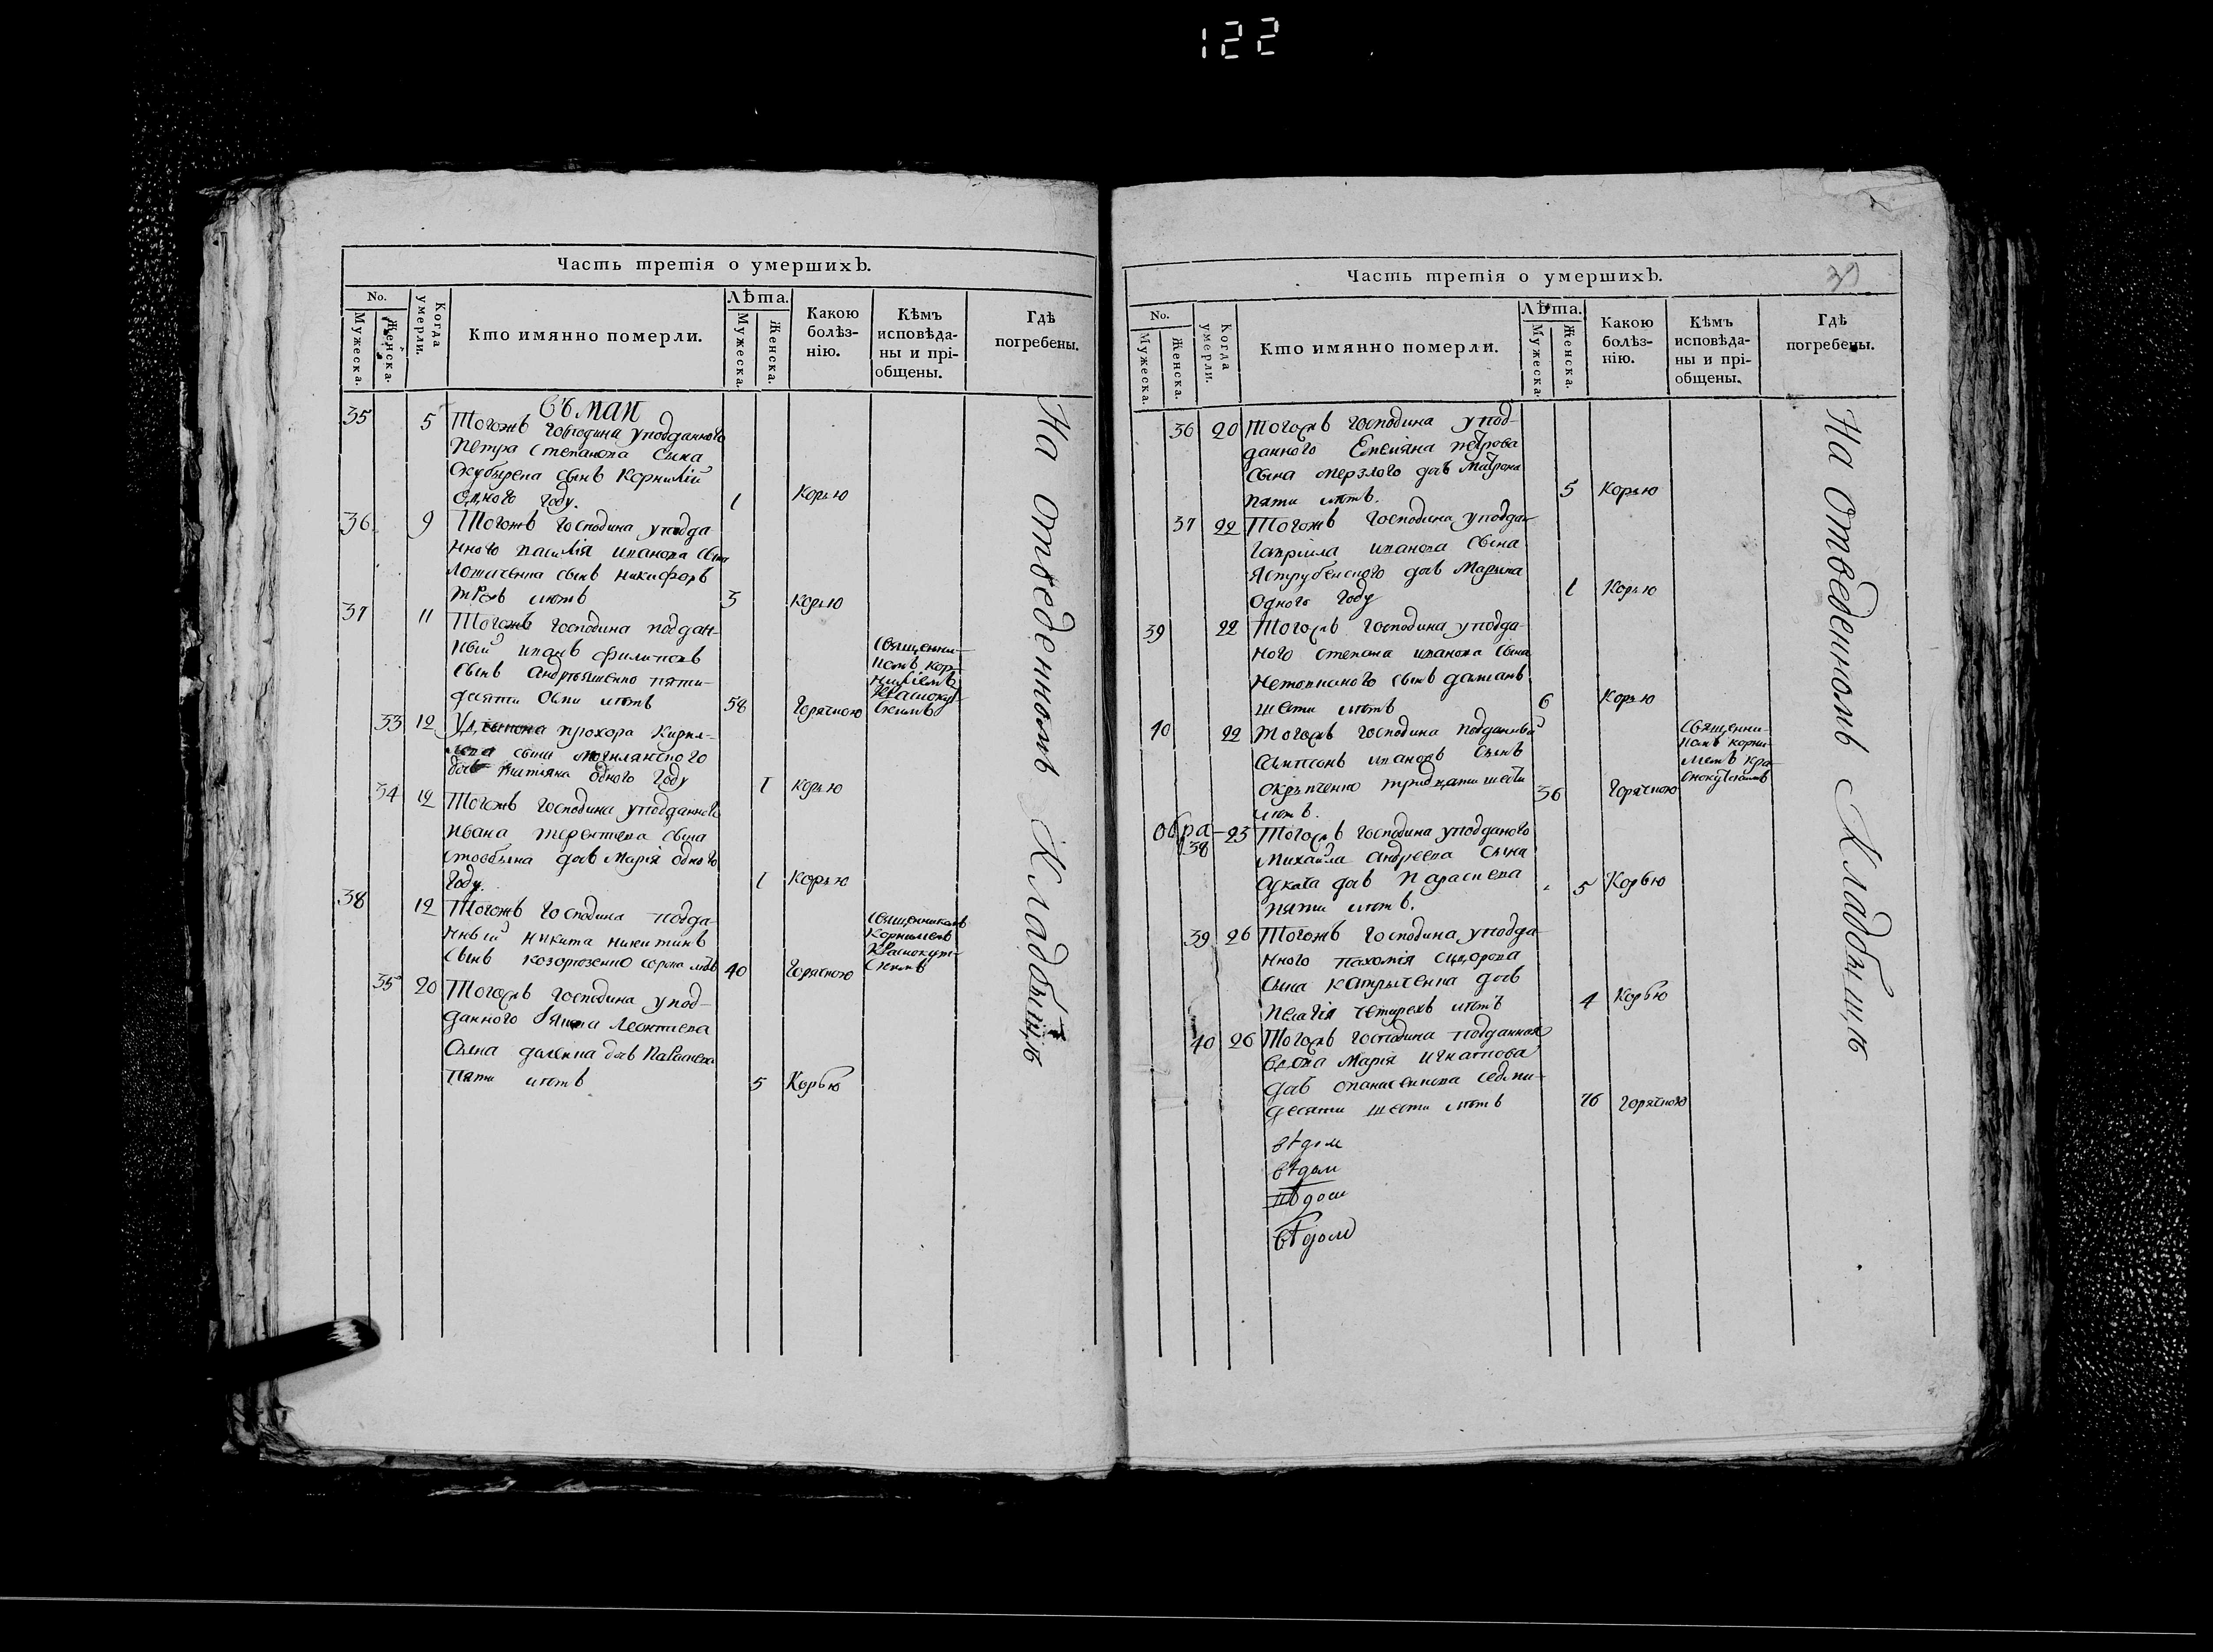 122
Часть третія о умершихъ.
No.
Мужеска.
Женска.
Когда умерли.
Кто имянно померли.
Лѣта.
Мужеска.
Женска.
Какою болѣз-
нію.
Кѣмъ
исповѣда-
ны и прі-
общены.
Гдѣ
погребены.
35 5 Тогожъ господина уподданного
Петра Степанова сына
сынъ Корнилій
одного году. 1 Корью
36 9 Тогожъ господина упода
нного василія иванова сына
сынъ никифоръ
трохъ лѣтъ 3 Корью
37 11 Тогожъ господина поддан-
ный иванъ филиповъ
сынъ андріяшенко пяти-
десяти осми лѣтъ 58 Горячкою
Священни-
комъ кор-
ниліемъ
Краснокут-
скимъ
33 12 прохора Кирил-
лова сына
дочь татіяна одного году 1 Корью
34 12 Тогожъ господина уподданного
ивана терентиева сына
дочь Марія одного
году. 1 Корью
38 12 Тогожъ господина подда-
нный никита никитинъ
сынъ сорока лѣтъ 40 Горячкою
Священникомъ
Корниліемъ
Краснокут-
скимъ
35 20 Тогожъ господина упод-
данного Леонтиева
сына дочь Параскева
пяти лѣтъ 5 Корью
На отведенномъ Кладбыщѣ
Часть третія о умершихъ.
No.
Мужеска.
Женска.
Когда умерли.
Кто имянно померли.
Лѣта.
Мужеска.
Женска.
Какою
болѣз-
нію.
Кѣмъ
исповѣда-
ны и прі-
общены.
Гдѣ
погребены.
36 20 Тогожъ господина упод-
данного Емелiяна петрова
сына мерзлого дочь Матрона
пяти лѣтъ. 5 Корью
37 22 Тогожъ господина уподдан
гавріила иванова сына
Яструбенского дочь Марина
одного году 1 Корью
39 22 Тогожъ господина уподда-
ного степана иванова сына
сынъ даміанъ
шести лѣтъ 6 Корью
40 22 Тогожъ господина подданный
Сампсонъ ивановъ сынъ
тридцати шести
лѣтъ. 36 Горячкою
Священни-
комъ корни-
лиемъ кра-
снокутскимъ
38 23 Тогожъ господина уподданого
Михайла андреева сына
дочь Параскева
пяти лѣтъ. 5 Корью
39 26 Тогожъ господина упода
нного пахомія сидорова
сына дочь
пелагія четырехъ лѣтъ 4 Корью
40 26 Тогожъ господина подданная
вдова Марія игнатова
дочь седми-
десяти шести лѣтъ 76 Горячкою
На отведеномъ Кладбыщѣ